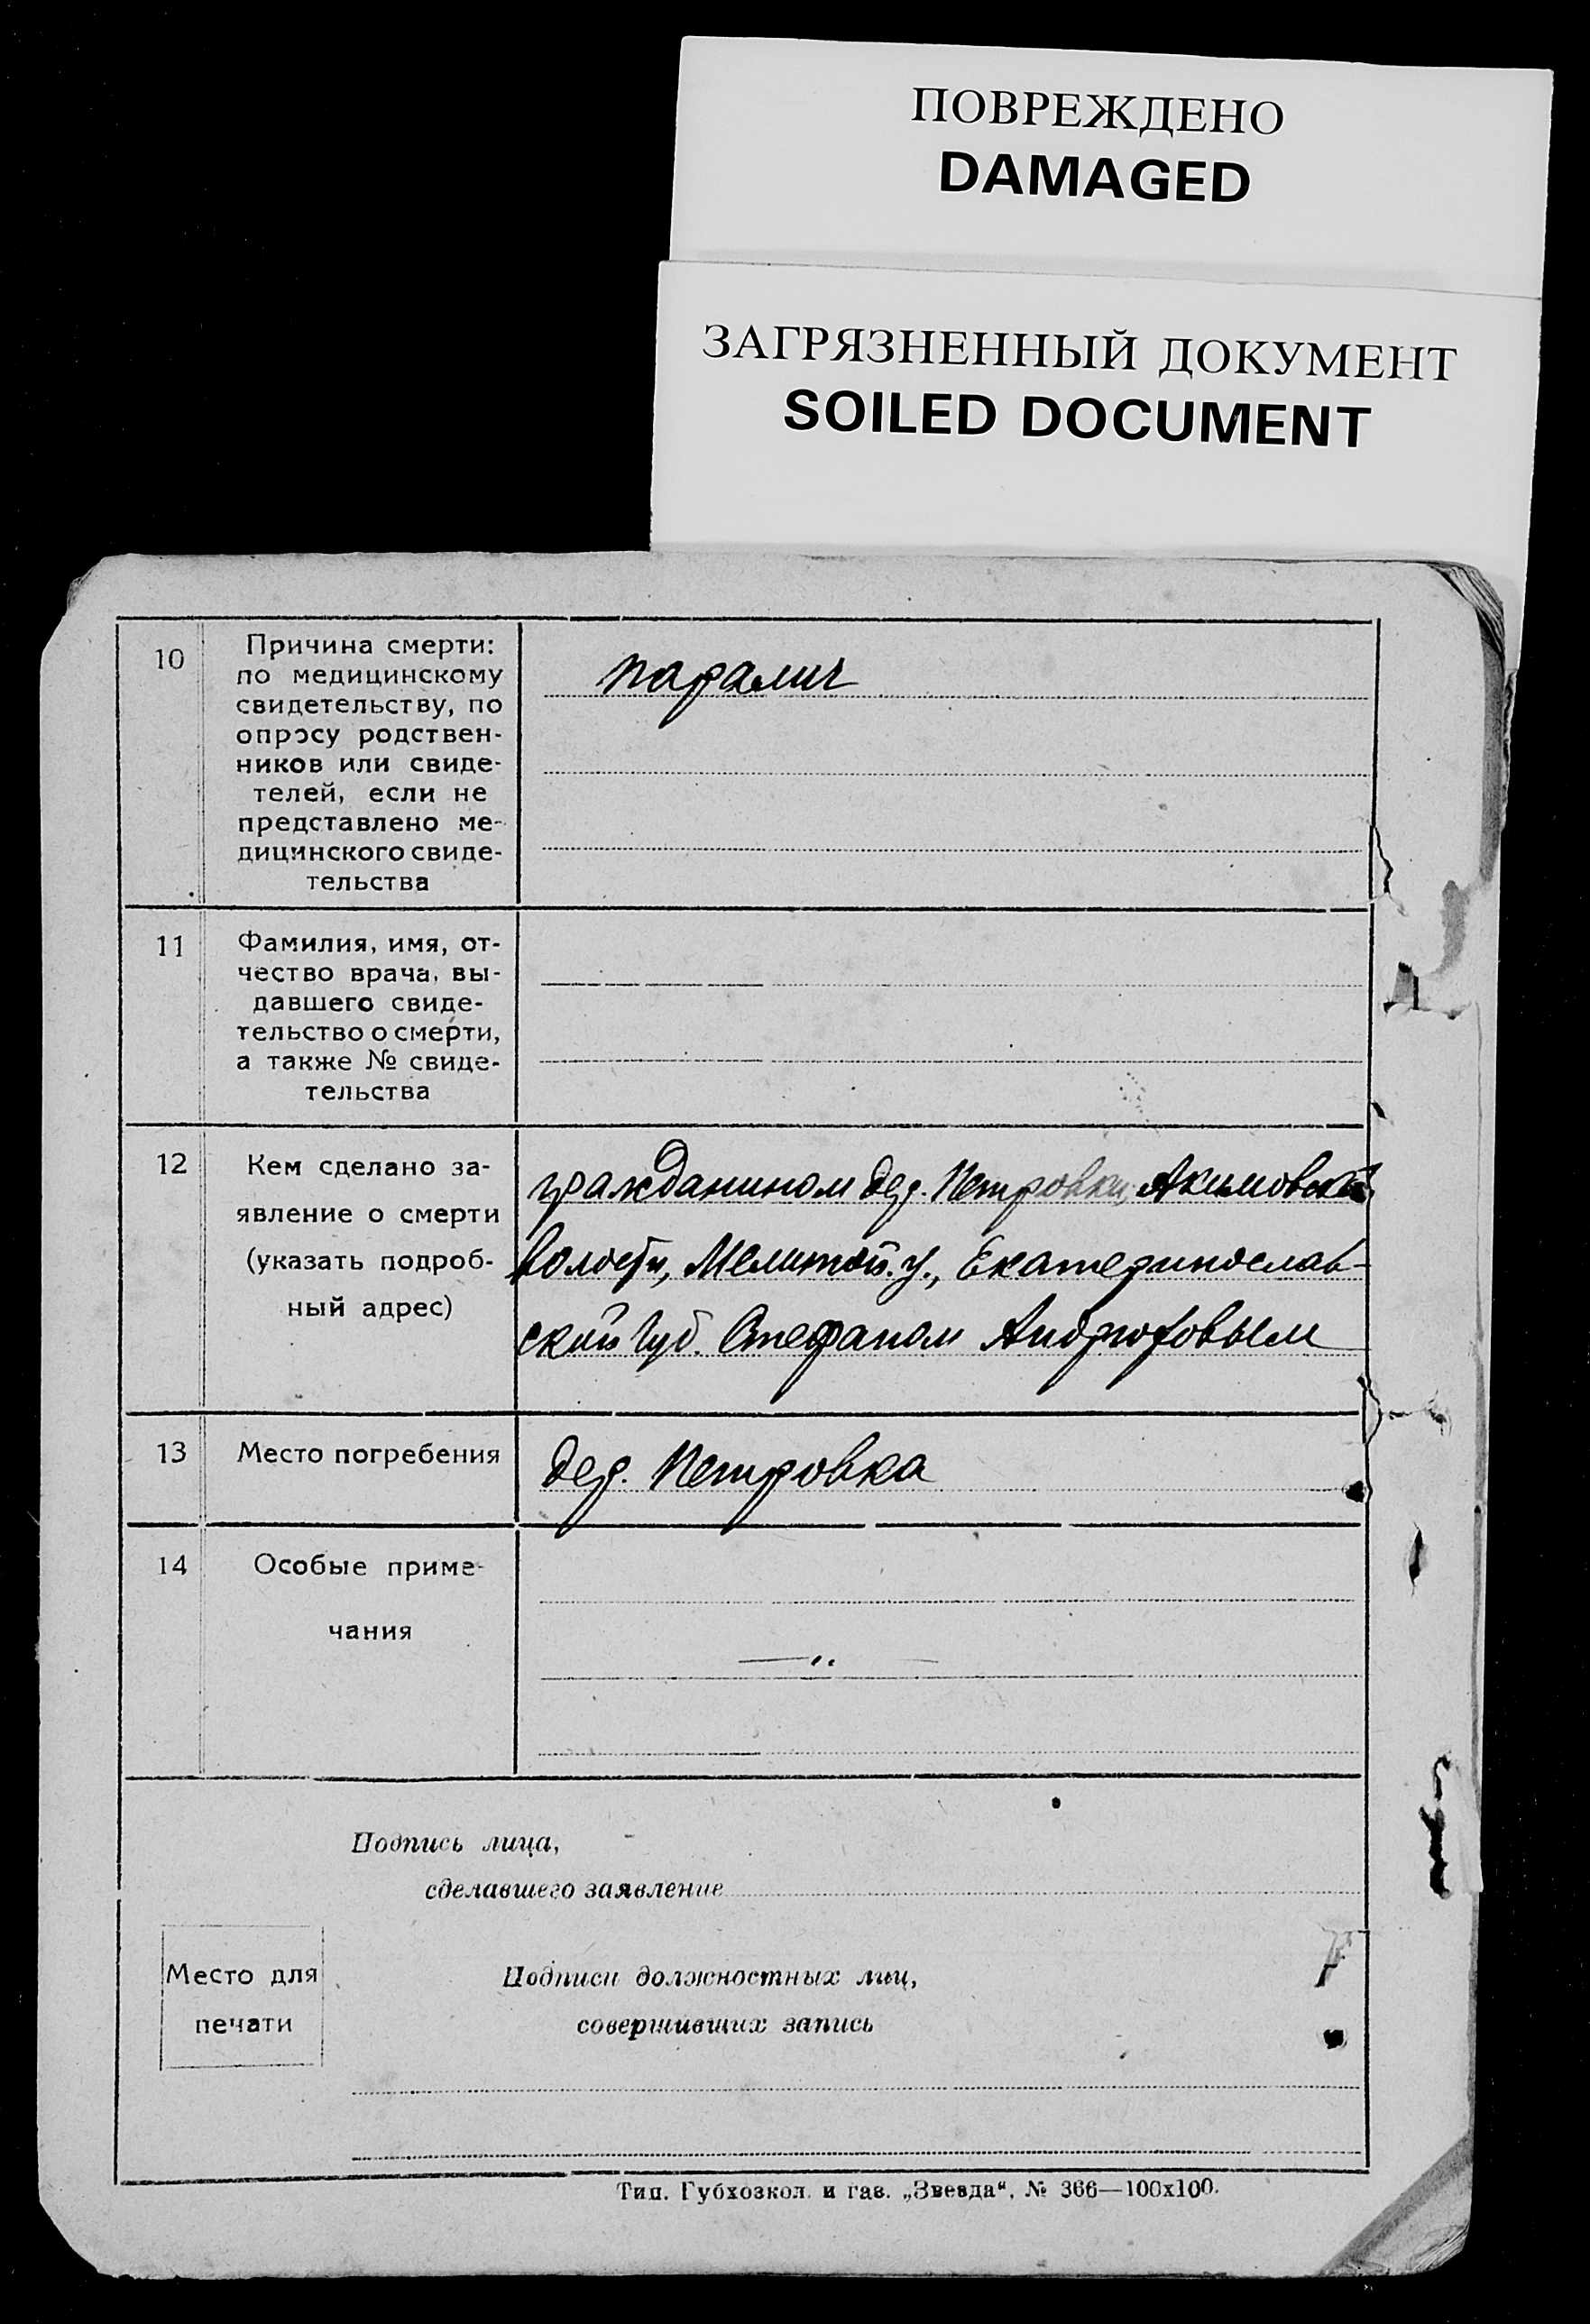 ПОВРЕЖДЕНО
DAMAGED
ЗАГРЯЗНЕННЫЙ ДОКУМЕНТ
SOILED DOCUMENT
10
Причина смерти:
по медицинскому
свидетельству, по
опросу родствен-
ников или свиде-
телей, если не
представлено ме-
дицинского свиде-
тельства
паралич
11
Фамилия, имя, от-
чество врача, вы-
давшего свиде-
тельство о смерти,
а также № свиде-
тельства
12
Кем сделано за-
явление о смерти
(указать подроб-
ный адрес)
гражданином дер. Петровки, Акимовской
волости, Мелитоп. у., Екатеринослав-
ской губ. Стефаном
13
Место погребения
дер. Петровка
14
Особые приме-
чания
—„—
Подпись лица,
сделавшего заявление
Место для
печати
Подписи должностных лиц,
совершивших запись
Тип. Губхозкол. и газ. „Звезда“, № 366—100х100.